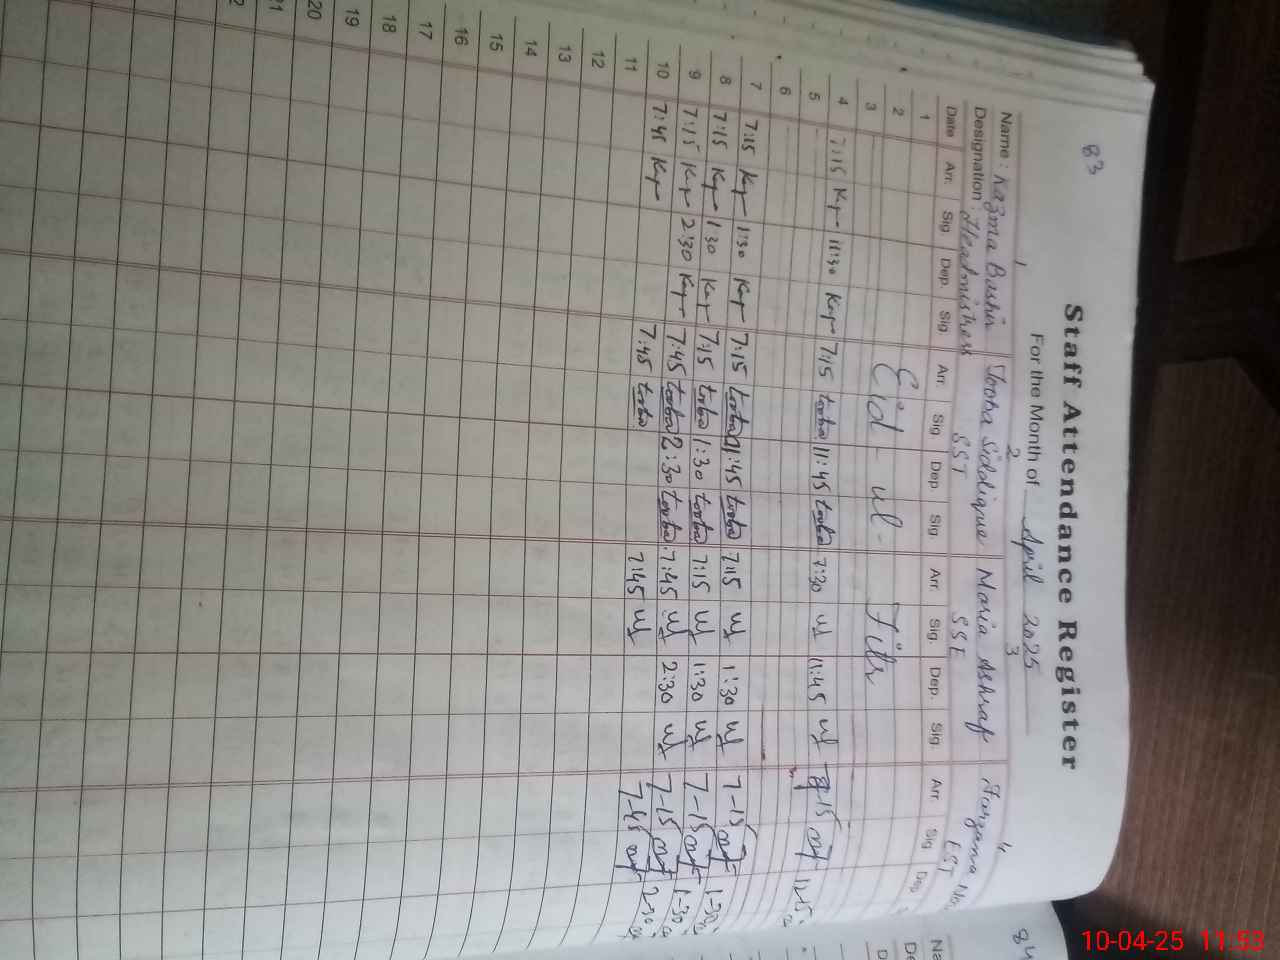 83
Staff Attendance Register
For the Month of April 2025
1 2 3 4
Name : Kazma Bashir Tooba Siddique Maria Ashraf Farzana
Designation : Headmistress SST SSE EST
Date Arr. Sig Dep. Sig Arr. Sig Dep. Sig. Arr. Sig. Dep. Sig. Arr. Sig Dep
1
2 Eid-ul-Fitr
3
4 7:15 11:30 7:15 tooba 11:45 tooba 7:30 11:45
5
6
7 7:15 1:30 7:15 tooba 11:45 tooba 7:15 1:30 7-15 1-30
8 7:15 1:30 7:15 tooba 1:30 tooba 7:15 1:30 7-15 1-30
9 7:15 2:30 7:45 tooba 2:30 tooba 7:45 2:30 7-15 2-30
10 7:45 7:45 tooba 7:45 7-45
11
12
13
14
15
16
17
18
19
20
84
10-04-25 11:53